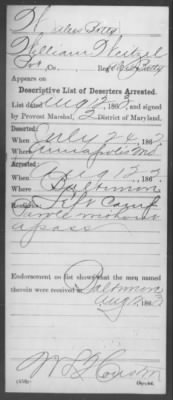 William Weitzel
Pvt, Co. Reg't Batty
Appears on
Descriptive List of Deserters Arrested.
List dated Aug 12, 186 , and signed
by Provost Marshal, 3 District of Maryland.
Deserted:
When July 24, 186
Where Annapolis Md
Arrested:
When Aug 12, 186
Where Baltimore
Remarks: Left Camp
without
a pass
Endorsement on list shows that the men named
therein were received at Baltimore
Aug 12, 186
Houston
Copyist.